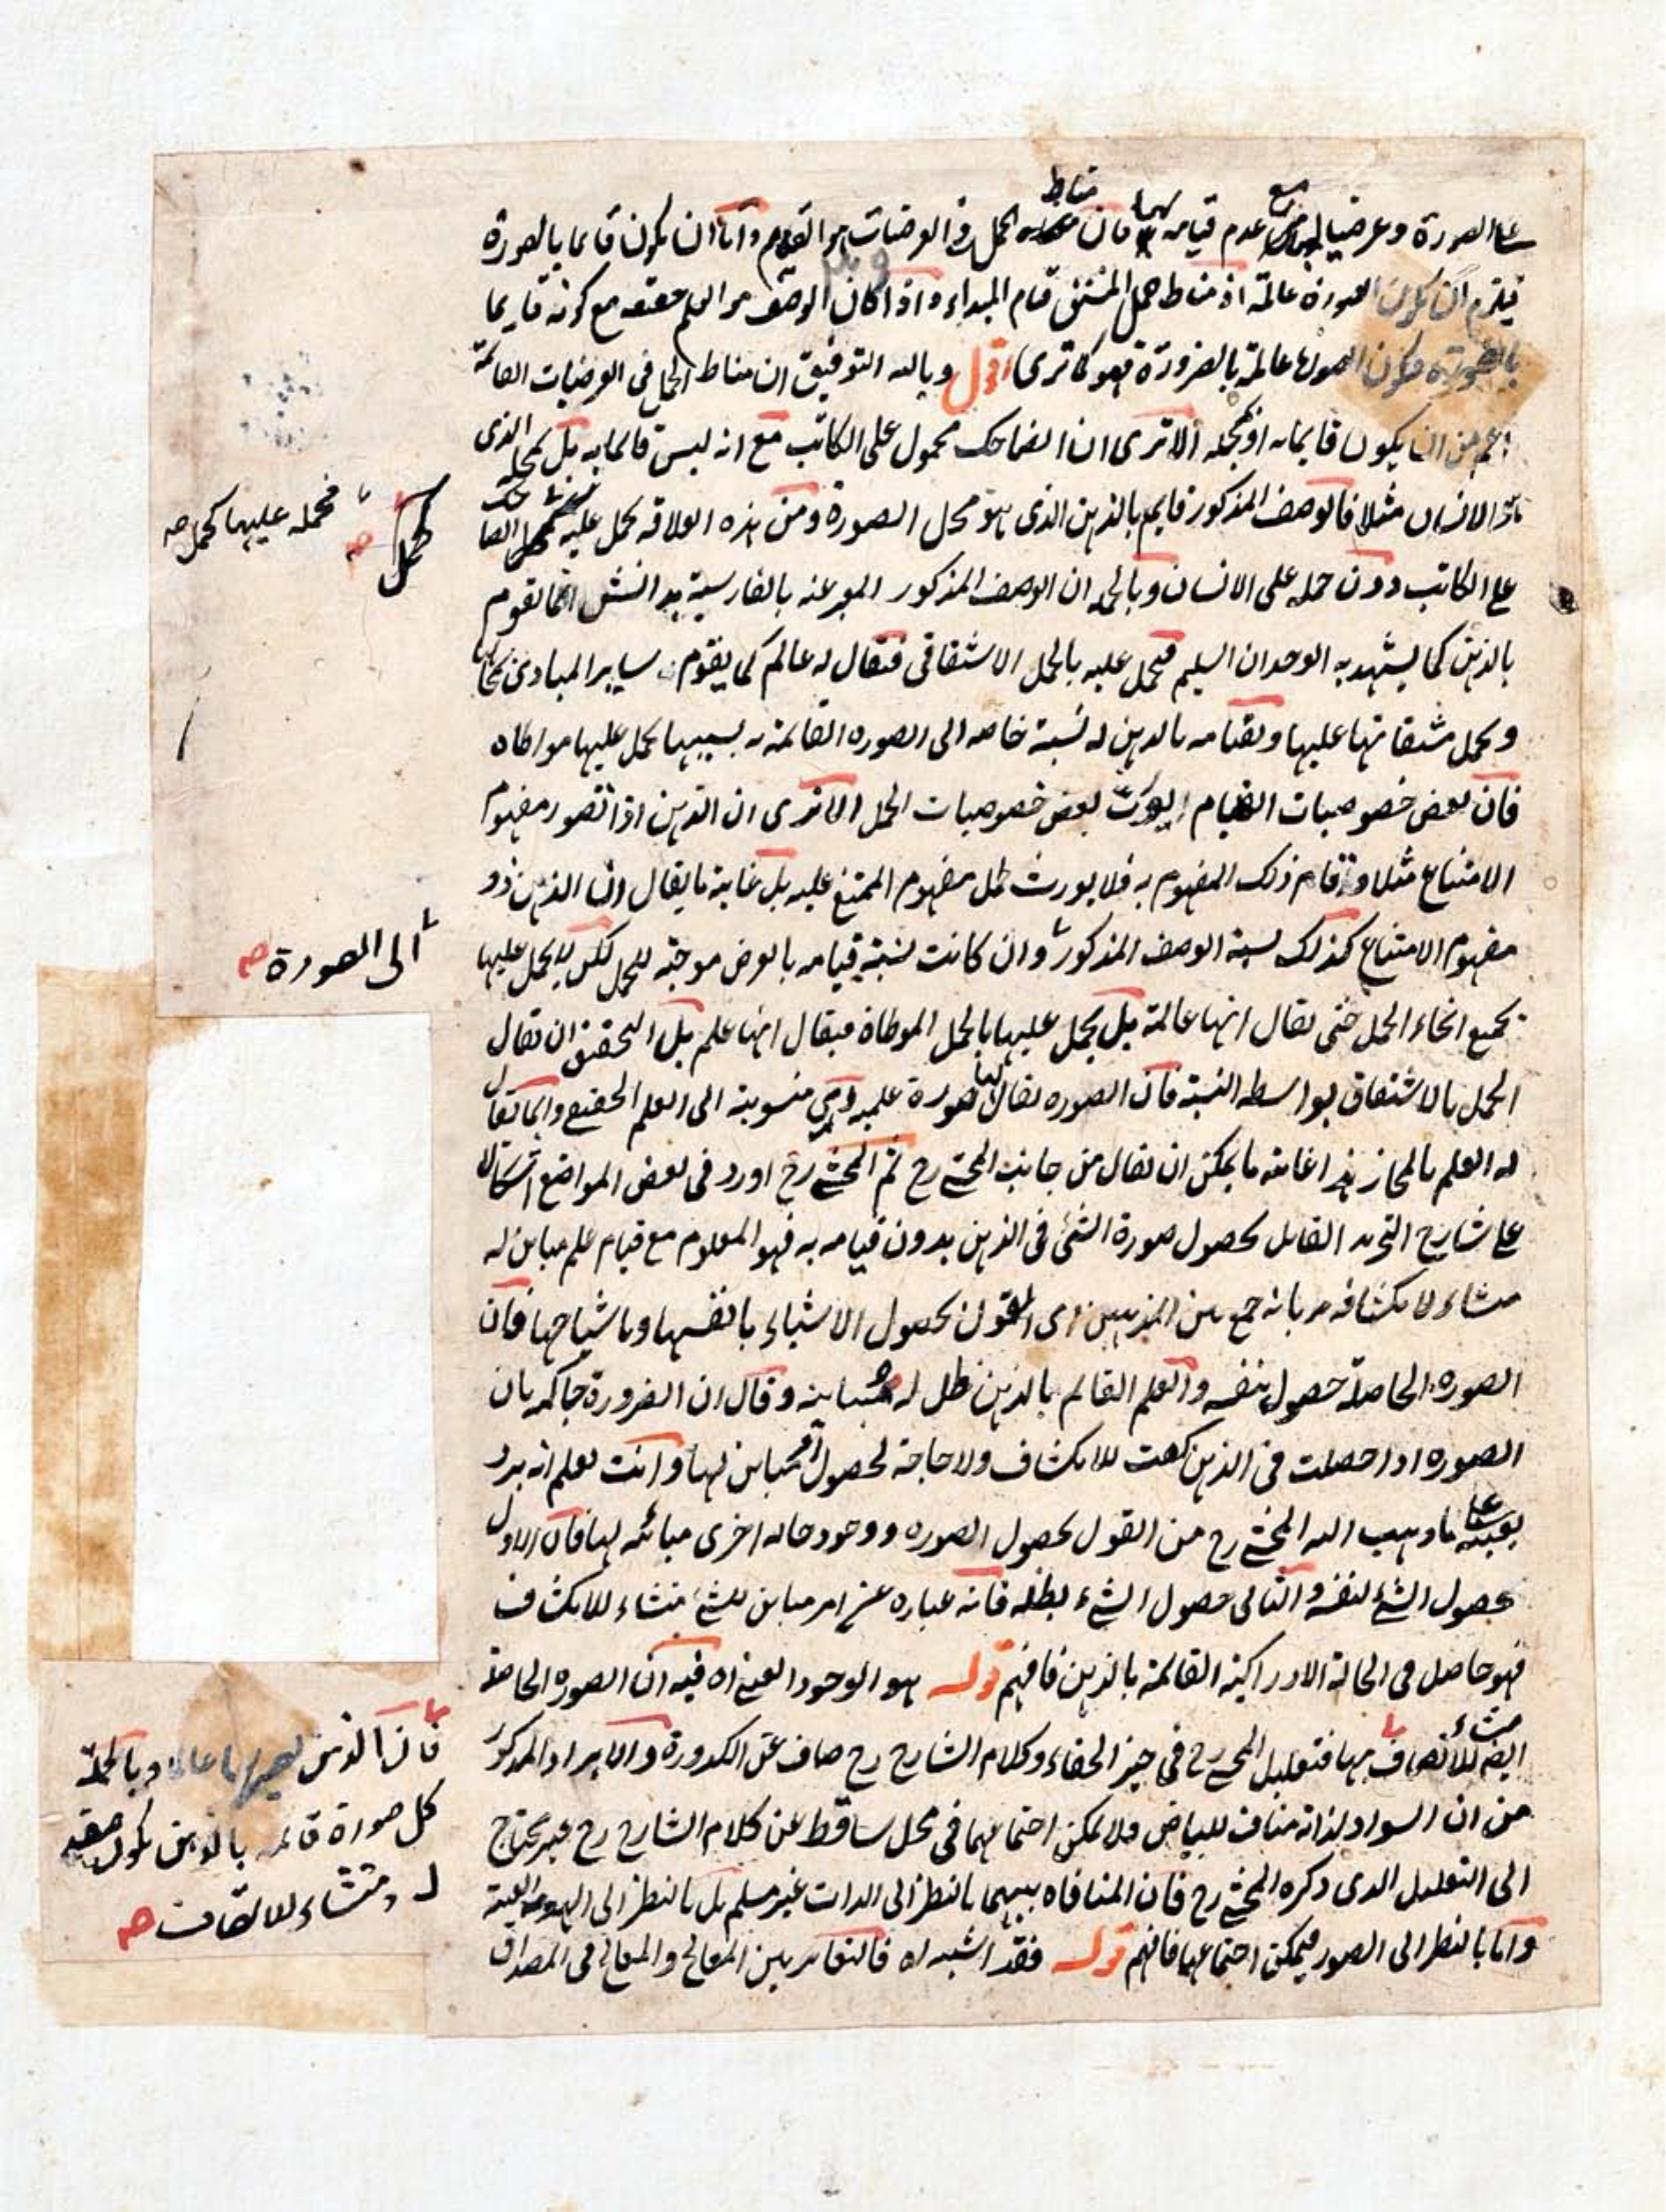 على الصورة وعرضيا لها مع عدم قيامه بها فان مناط الحمل فى العرضيات هو القيام واما ان يكون قايما بالصورة
فيلزم ان يكون الصورة عالمة اذ مناط حمل المشتق قيام المبداء واذا كان الوصف هو العلم حقيقة مع كونه قايما
بالصورة فكون الصورة عالمة بالضرورة فهو كما ترى اقول وبالله التوفيق ان مناط الحمل فى العرضيات القائمة
اعم من ان يكون قايما به او بمحله الا ترى ان الضاحك محمول على الكاتب مع انه ليس قائما به بل بمحله الذى
هو الانسان مثلا فالوصف المذكور قايم بالذهن الذى هو محل الصورة ومن هذه العلاقة يحمل عليه
على الكاتب دون حمله على الانسان وبالجملة ان الوصف المذكور المعبر عنه بالفارسية بدانش انما تقوم
بالذهن كما يشهد به الوجدان السليم فيحمل عليه بالحمل الاشتقاقى فيقال له عالم كما يقوم سایر المبادى بمحالها
ويحمل مشتقاتها عليها ولقيامه بالذهن له نسبة خاصة الى الصورة القائمة به بسببها يحمل عليها مواطاة
فان بعض خصوصيات القيام يورث بعض خصوصيات الحمل الا ترى ان الذهن اذا تصور مفهوم
الامتناع مثلا وقام ذلك المفهوم به فلا يورث حمل مفهوم الممتنع عليه بل غاية ما يقال ان الذهن ذو
مفهوم الامتناع كذلك نسبة الوصف المذكور وان كانت نسبة قيامه بالعرض موجبة للحمل لكن لا يحمل عليها
بجميع انحاء الحمل حتى يقال انها عالمة بل يحمل عليها بالحمل المواطاة فيقال انها علم بل التحقيق ان يقال
الحمل بالاشتقاق بواسطة النسبة فان الصورة يقال لها صورة علمية اى منسوبة الى العلم الحقيقى وانما يقال
له العلم بالمجاز هذا غاية ما يمكن ان يقال من جانب المحشى رح ثم المحشى رح اورد فى بعض المواضع اشكالا
على شارح التجريد القايل بحصول صورة الشئ فى الذهن بدون قيامه به فهو المعلوم مع قيام علم مباين له
منشاء لانكشافه بانه جمع بين المذهبين اى القول بحصول الاشياء بانفسها وباشباحها فان
الصورة الحاصلة حصول بنفسه والعلم القائم بالذهن ظل له ومباينه وقال ان الضرورة حاكمة بان
الصورة اذا حصلت فى الذهن كفت للانكشاف ولا حاجة لحصول امر مباين لها وانت تعلم انه يرد
بعينه على ما ذهب اليه المحشى رح من القول بحصول الصورة ووجود حالة اخرى مبائنة لها فان الاول
حصول الشئ بنفسه والثانى حصول الشئ بظله فانه عبارة عن امر مباين للشئ منشاء للانكشاف
فهو حاصل فى الحالة الادراكية القائمة بالذهن فافهم قوله هو الوجود العينى اه فيه ان الصورة الحاصلة
ايضا منشاء للاتصاف بها فتعليل المحشى رح فى حيز الخفاء وكلام الشارح رح صاف عن الكدورة والايراد المذكور
من ان السواد لذاته مناف للبياض فلا يمكن اجتماعهما فى محل ساقط عن كلام الشارح رح غير محتاج
الى التعليل الذى ذكره المحشى رح فان المنافاة بينهما بالنظر الى الذات غير مسلم بل بالنظر الى الهوية العينية
واما بالنظر الى الصور فيمكن اجتماعهما فافهم قوله فقد اشبه اه فالتغاير بين المعالج والمعالج فى المصداق
فحمله عليها كحمل صح
كحمل
صح
الى الصورة صح
فان الذهن يصير بها عالما وبالجملة
كل صورة قائمة بالذهن يكون صفة
له ومنشاء للاتصاف صح